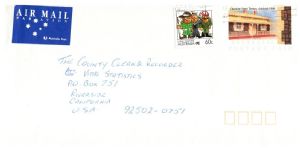 AIR MAIL
PAR AVION
Australia Post
60c
THE COUNTY CLERK & RECORDER
VITAL STATISTICS
P.O. BOX 751
RIVERSIDE
CALIFORNIA
U.S.A 92502-0751